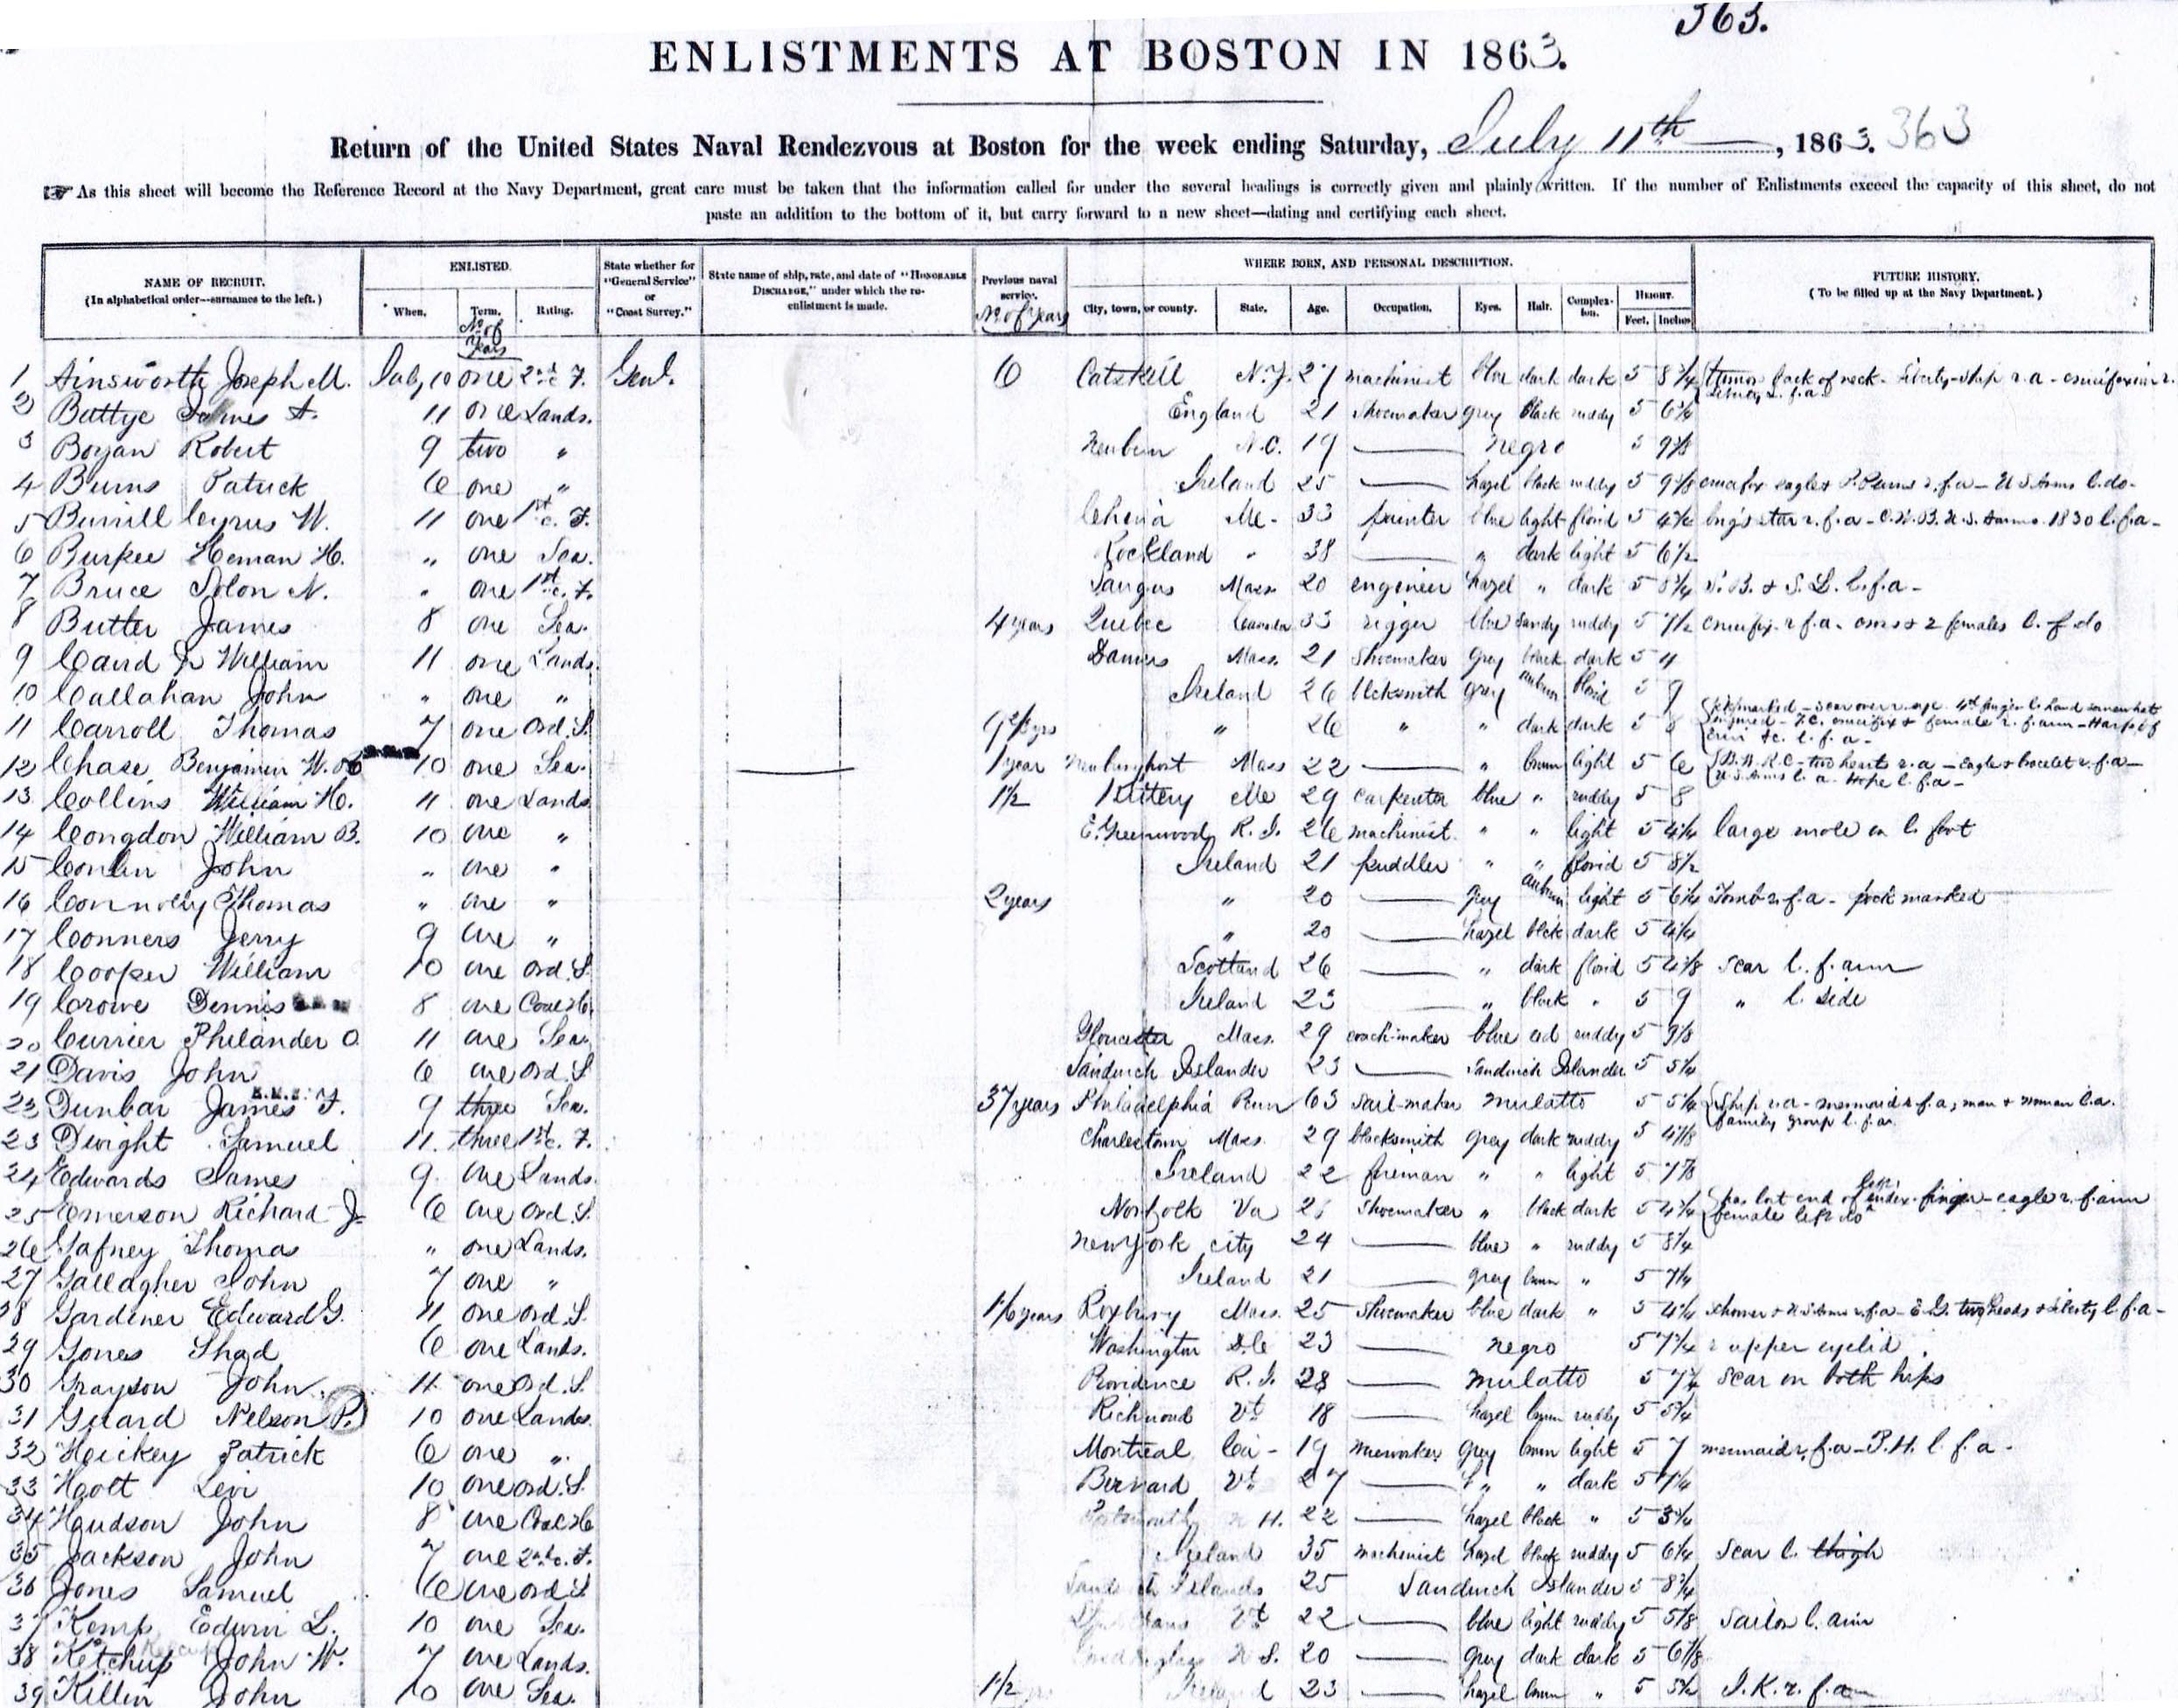 363.
ENLISTMENTS AT BOSTON IN 1863.
Return of the United States Naval Rendezvous at Boston for the week ending Saturday, July 11th, 1863. 363
☞ As this sheet will become the Reference Record at the Navy Department, great care must be taken that the information called for under the several headings is correctly given and plainly written. If the number of Enlistments exceed the capacity of this sheet, do not
paste an addition to the bottom of it, but carry forward to a new sheet—dating and certifying each sheet.
NAME OF RECRUIT. (In alphabetical order—surnames to the left.) ENLISTED. When. Term. No of Years Rating. State whether for "General Service" or "Coast Survey." State name of ship, rate, and date of "HONORABLE DISCHARGE," under which the re-enlistment is made. Previous naval service. No. of Years WHERE BORN, AND PERSONAL DESCRIPTION. City, town, or county. State. Age. Occupation. Eyes. Hair. Complexion. HEIGHT. Feet. Inches. FUTURE HISTORY. (To be filled up at the Navy Department.)
1 Ainsworth Joseph M. July 10 one 2nd c. F. Genl. 6 Catskill N.Y. 27 machinist blue dark dark 5 8 1/4
2 Battye James A. 11 one Lands. England 21 Shoemaker grey black ruddy 5 6 1/4
3 Boyan Robert 9 two " Newbern N.C. 19 — negro 5
4 Burns Patrick 6 one " Ireland 25 — hazel black ruddy 5
5 Burrill Cyrus W. 11 one 1st c. F. Me. 33 painter blue light florid 5 4 1/2
6 Burkee Heman H. " one Sea. Rockland " 38 — " dark light 5 6 1/2
7 Bruce Solon N. " one 1st c. F. Saugus Mass 20 engineer hazel " dark 5 S. B. & S. L. l. f. a -
8 Butler James 8 one Sea. 4 years Quebec Canada 33 rigger blue sandy ruddy 5 7 1/2 crucifix r f. a - & 2 females l. f. do
9 Caird Jr William 11 one Lands. Danvers Mass. 21 Shoemaker grey black dark 5 4
10 Callahan John " one " Ireland 26 blcksmith grey auburn florid 5 9
11 Carroll Thomas 7 one Ord. S. " 26 " " dark dark 5 8
12 Chase Benjamin W. 10 one Sea. 1 year Newburyport Mass 22 — " brown light 5 6
13 Collins William H. 11 one Lands 1 1/2 Kittery Me 29 carpenter blue " ruddy 5 8
14 Congdon William B. 10 one " E. Greenwood R. I. 26 machinist. " " light 5 4 1/4 large mole on l. foot
15 Conlin John " one " Ireland 21 puddler " " florid 5 8 1/2
16 Connolly Thomas " one " 2 years " 20 — grey auburn light 5 6 1/4 Tomb r. f. a - pock marked
17 Conners Jerry 9 one " " 20 — hazel blck dark 5 4 1/4
18 Cooper William 10 one Ord. S. Scotland 26 — " dark florid 5 scar l. f. arm
19 Crowe Dennis 8 one Coal H. Ireland 23 " black " 5 9 " l. side
20 Currier Philander O. 11 one Sea. Gloucester Mass. 29 coach-maker blue red ruddy 5
21 Davis John 6 one Ord. S. Sandwich Islander 23 — Sandwich Islander 5 5 1/4
22 Dunbar James F. 9 three Sea. 37 years Philadelphia Penn 63 sail-maker mulatto 5 5 1/4 Ship r. a - mermaid r. f. a, man & woman l. a. family group l. f. a.
23 Dwight Samuel 11. three 1st c. F. Charlestown Mass. 29 blacksmith grey dark ruddy 5 4 7/8
24 Edwards James 9. one Lands. Ireland 22 fireman " " light 5 7 7/8
25 Emerson Richard Jr 6 one Ord. S. Norfolk Va Shoemaker " black dark 5 4 1/4 has lost end of left index finger - eagle r. f. arm female left do
26 Gafney Thomas " one Lands. New York city 24 — blue " ruddy 5 8 1/4
27 Gallagher John 7 one " Ireland 21 — grey brown " 5 7 1/4
28 Gardiner Edward G. 11 one ord. S. 1 1/6 years Roxbury Mass. 25 Shoemaker blue dark " 5 4 1/4
29 Gones Shad 6 one Lands. Washington D.C 23 — negro 5 r upper eyelid
30 Grayson John. 11 one Ord. S. Providence R. I. 28 — mulatto 5 scar on both hips
31 Guard Nelson P. 10 one Lands. Richmond Vt 18 — hazel brown ruddy 5
32 Hickey Patrick 6 one " Montreal Ca - 19 grey brown light 5 7 mermaid r. f. a - P. H. l. f. a -
33 Holt Levi 10 one ord. S. Vt 27 — " " dark 5 7 1/4
34 Hudson John 8 one Coal H. Portsmouth N H. 22 — hazel black " 5
35 Jackson John 7 one 2nd c. F. Ireland 35 machinist hazel black ruddy 5 6 1/4 scar l. thigh
36 Jones Samuel 6 one ord S Sandwich Islands 25 Sandwich Islander 5 8 3/4
37 Kemp Edwin L. 10 one Sea. Vt 22 — blue light ruddy 5 5/8 Sailor l. arm
38 Ketchup John W. 7 one Lands. N. S. 20 — grey dark dark 5 6 7/8
39 Killin John 10 one Sea. 1 1/2 Ireland 23 — hazel brown " 5 5 1/2 J. K. r. f. a